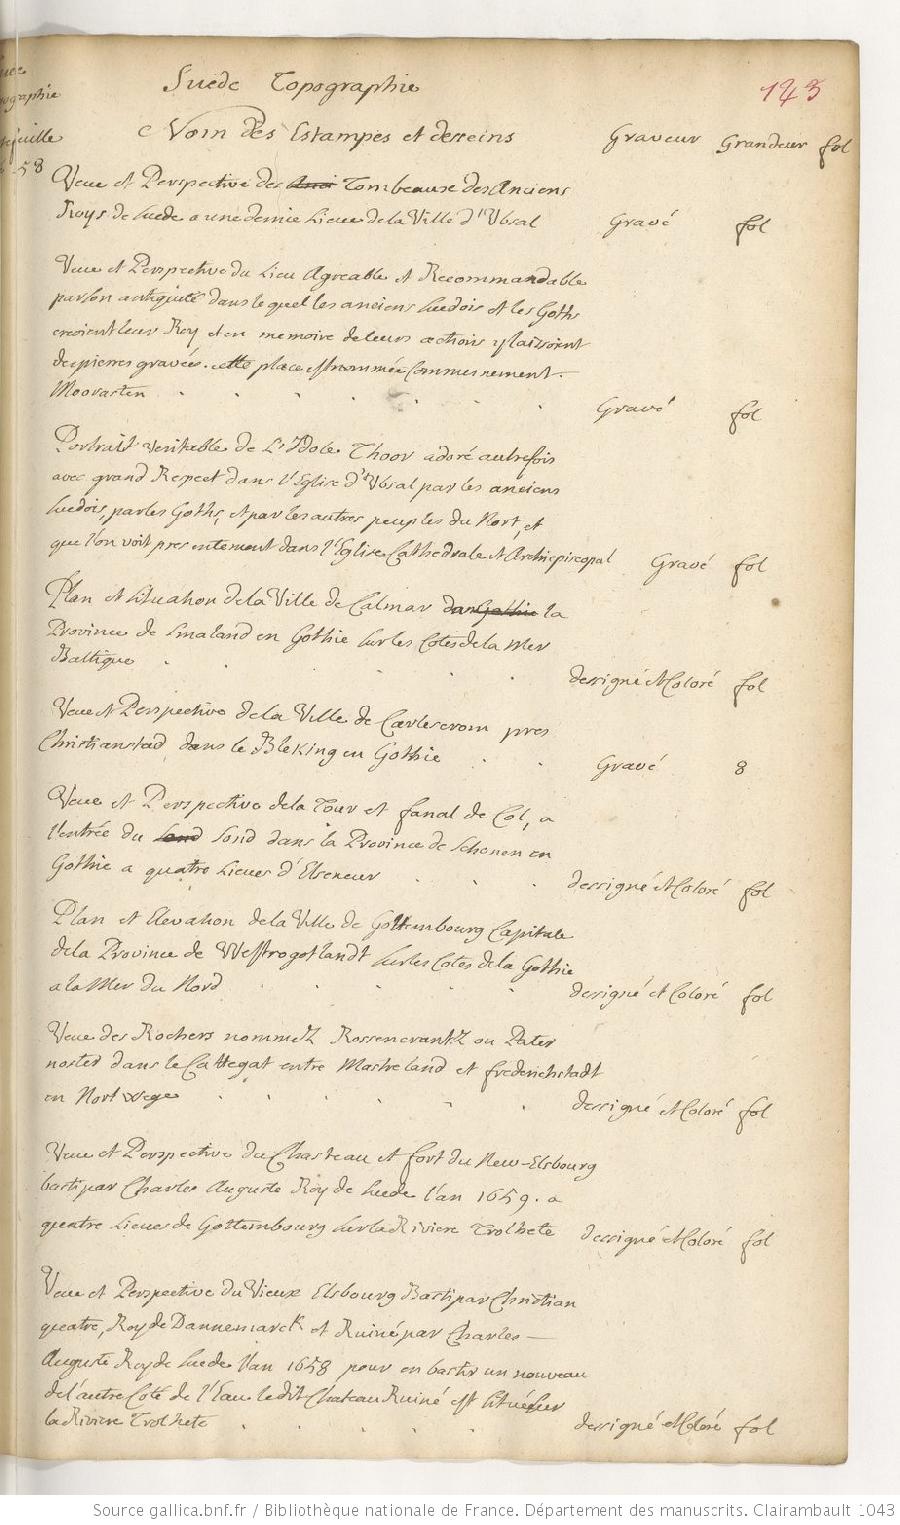 Suede Topographie
143
Nom des Estampes et desseins Graveur Grandeur fol
58
Veue et Perspective des Anci Tombeaux des Anciens
Roys de Suede a une demie Lieue de la Ville d'Vbsal Gravé fol
Veue et Perspective du Lieu Agreable et Recommandable
par son antiquité dans lequel les anciens Suedois et les Goths
creoient leur Roy et en memoire de leurs actions y laissoient
des pierres gravées. cette place est nommée Communement
Moorasten Gravé fol
Portrait veritable de L'Idole Thoor adoré autrefois
avec grand Respect dans l'Eglise d'Vbsal par les anciens
Suedois, par les Goths, et par les autres peuples du Nort, et
que l'on voit presentement dans l'Eglise Cathedrale et Archiepiscopal Gravé fol
Plan et Situation de la Ville de Calmar dans Gothie la
Province de Smaland en Gothie sur les Cotes de la Mer
Baltique dessigné et Coloré fol
Veue et Perspective de la Ville de Carlescrom pres
Christianstad dans le Bleking en Gothie Gravé 8
Veue et Perspective de la Tour et fanal de Col, a
l'entrée du Sond Sond dans la Province de Schonen en
Gothie a quatre Lieues d'Elseneur dessigné et Coloré fol
Plan et Elevation de la Ville de Gottembourg Capitale
de la Province de Westrogotlandt sur les Cotes de la Gothie
a la Mer du Nord dessigné et Coloré fol
Veue des Rochers nommez Rossencrantz ou Pater
noster dans le Cattegat entre Mastreland et frederichstadt
en Nortwege dessigné et Coloré fol
Veue et Perspective du Chasteau et fort du New-Elsbourg
basti par Charles Auguste Roy de Suede l'an 1659. a
quatre Lieues de Gottembourg sur la Riviere Trolhete dessigné et Coloré fol
Veue et Perspective du Vieux Elsbourg Basti par Christian
quatre, Roy de Dannemarck et Ruiné par Charles
Auguste Roy de Suede l'an 1658 pour en bastir un nouveau
de l'autre Coté de l'Eau ledit Chateau Ruiné est situé sur
la Riviere Trolhete dessigné et Coloré fol
Source gallica.bnf.fr / Bibliothèque nationale de France. Département des manuscrits. Clairambault 1043